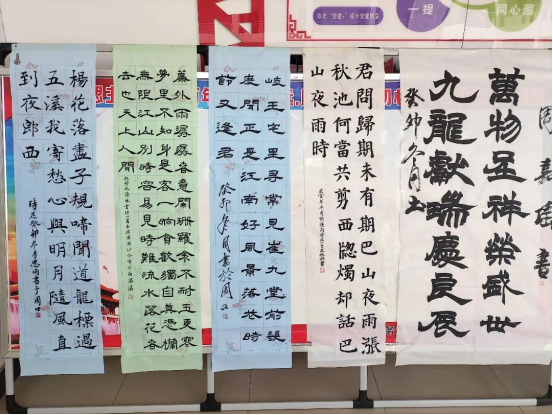 一提
萬物呈祥榮盛世
九龍獻瑞慶良辰
癸卯冬月
君問歸期未有期巴山夜雨漲
秋池何當共剪西牕燭却話巴
山夜雨時
岐王宅里尋常見崔九堂前幾
度聞正是江南好風景落花時
節又逢君
癸卯冬月書於
簾外雨潺潺春意闌珊羅衾不耐五更寒
夢里不知身是客一晌貪歡獨自莫憑欄
無限江山別時容易見時難流水落花春
去也天上人間
楊花落盡子規啼聞道龍標過
五溪我寄愁心與明月隨風直
到夜郎西
時在癸卯冬月